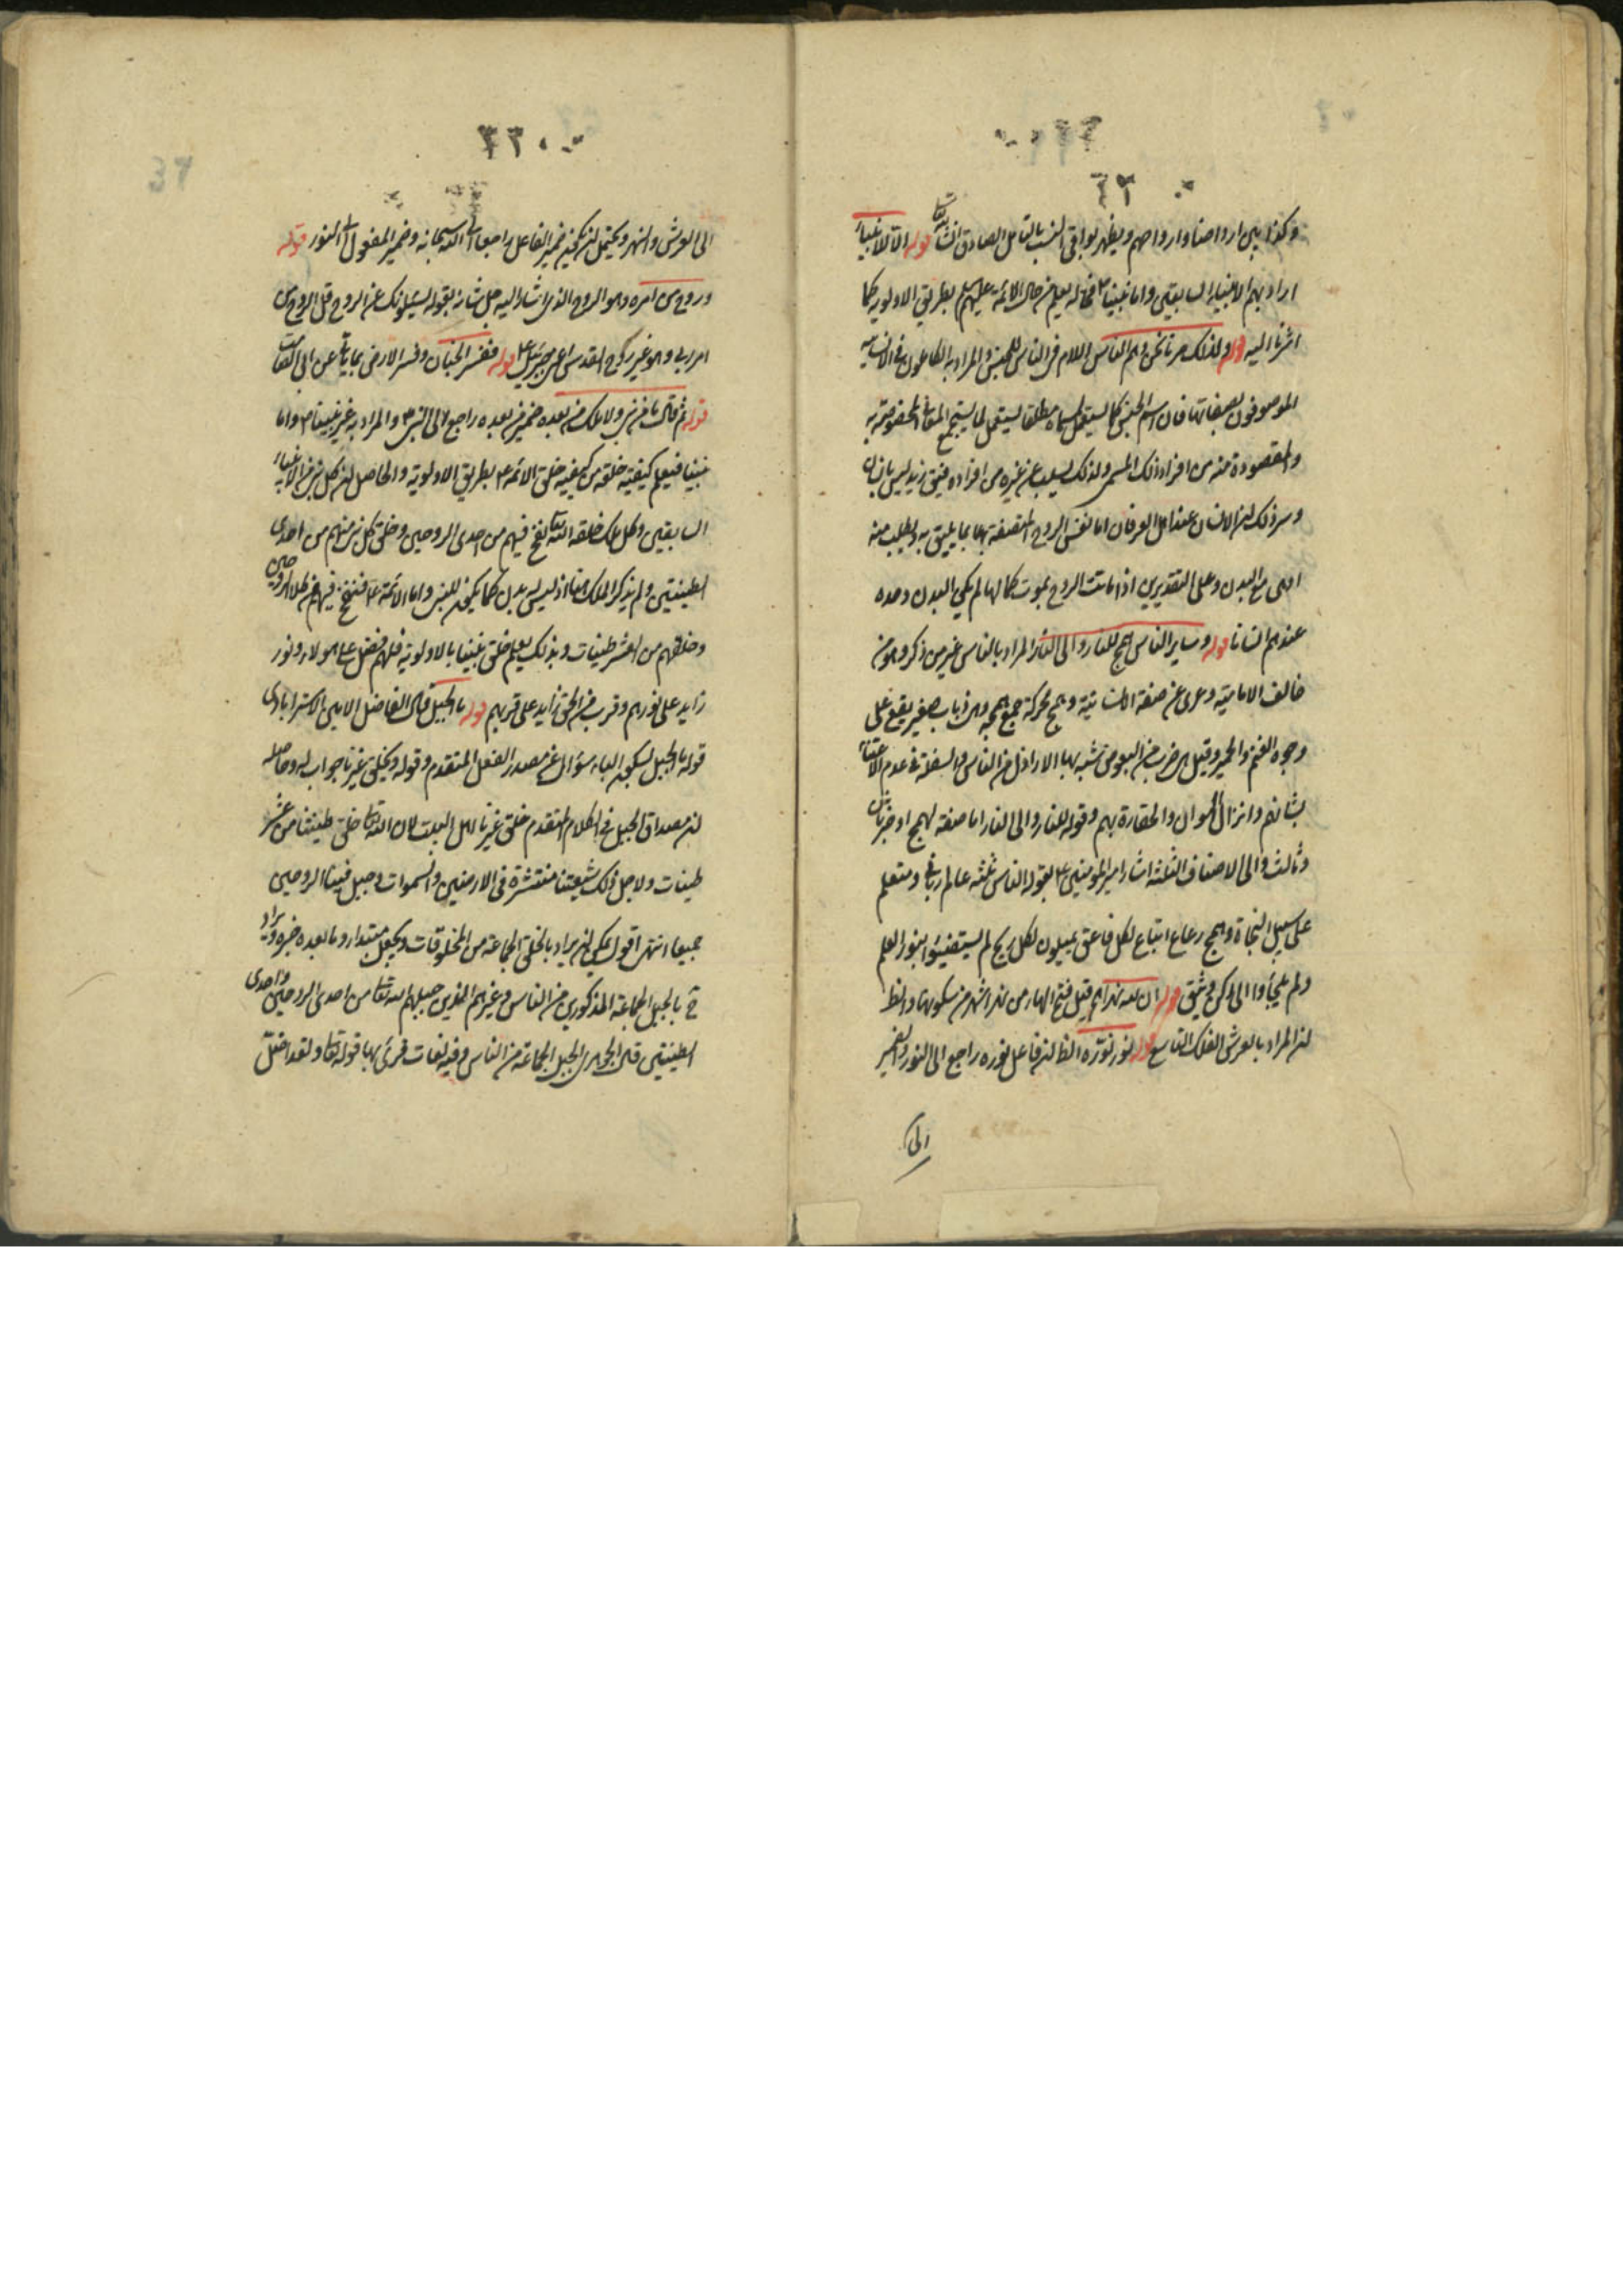 وكذا بين ارواحنا وارواحهم ويظهر بواقي النسب بالتامل الصادق انشا الله تعالى قوله الا للانبياء
اراد بهم الانبياء السابقين واما نبينا ص فحاله يعلم من حال الائمة عليهم السلم بطريق الاولوية كما
اشرنا اليه قوله ولذلك صرنا نحن وهم الناس اللام في الناس للجنس والمراد به الكاملون في الانسانية
الموصوفون بصفاتها فان اسم الجنس كما يستعمل لمسماه مطلقا يستعمل لما يستجمع المعاني المخصوصة به
والمقصودة منه من افراد ذلك المسمى ولذلك يسلب عن غيره من افراده فيق زيد ليس بانسان
وسر ذلك ان الانسان عند اهل العرفان اما نفس الروح المتصفة بها بما يليق به ويطلب منه
او هي مع البدن وعلى التقديرين اذا ماتت الروح بموت كمالها لم يكن البدن وحده
عندهم انسانا قوله وساير الناس همج للنار والى النار المراد بالناس غير من ذكر وهو من
خالف الامامية وعرى عن صفة الانسانية وهمج محركة جمع همجة وهي ذباب صغير يقع على
وجوه الغنم والحمير وقيل هي ضرب من البعوض شبه بها الاراذل من الناس والسفلة في عدم الاعتناء
بشانهم وانزال الهوان والحقارة بهم وقوله للنار والى النار اما صفة لهمج او خبر ثان
وثالث والى الاصناف الثلثة اشار امير المؤمنين ع بقوله الناس ثلثه عالم رباني ومتعلم
على سبيل النجاة وهمج رعاع اتباع لكل ناعق يميلون لكل ريح لم يستضيئوا بنور العلم
ولم يلجأوا الى ركن وثيق قوله ان لله نهرا هم قيل فتح الهاء من نهر اشهر من سكونها والظ
ان المراد بالعرش الفلك التاسع قوله نور نوره الظ ان فاعل نوره راجع الى النور والضمير
الى
٣٣٠
الى العرش والنهر ويحتمل ان يكون ضمير الفاعل راجعا الى الله سبحانه وضمير المفعول الى النور قوله
وروح من امره وهو الروح الذي اشار اليه جل شانه بقوله يسئلونك عن الروح قل الروح من
امر ربي وهو غير روح القدس اعني جبرئيل ع قوله ففسر الجنان وفسر الارض بما ياتي عن ابي الصامت
قوله ثم قال ما من نبي ولا ملك من بعده ضمير من بعده راجع الى النبي ص والمراد به غير نبينا ص واما
نبينا فيعلم كيفية خلقه من كيفية خلق الائمة ع بطريق الاولوية والحاصل ان كل نبي من الانبياء
السابقين وكل ملك خلقه الله تعالى نفخ فيهم من احدى الروحين وخلق كل نبي منهم من احدى
الطينتين ولم يذكر الملك هنا اذ ليس له بدن كما يكون للنبي واما الائمة ع فنفخ فيهم من كلا الروحين
وخلقهم من العشر طينات وبذلك يعلم خلق نبينا بالاولوية فلهم فضل على هولاء ونور
زايد على نورهم وقرب من الحق زايد على قربهم قوله ما الجبل قال الفاضل الامين الاسترابادي
قوله ما الجبل بسكون الباء سؤال عن مصدر الفعل المتقدم وقوله الخلق غيرنا جواب له وحاصله
ان مصداق الجبل في الكلام المتقدم خلق غيرنا اهل البيت لان الله تعالى خلق طينتنا من عشر
طينات ولاجل ذلك شيعتنا منتشرة في الارضين والسموات وجبل فينا الروحين
جميعا انتهى اقول يمكن ان يراد بالخلق الجماعة من المخلوقات ويجعل مبتدا وما بعده خبره ويراد
ح بالجبل الجماعة المذكورين من الناس وغيرهم الذين جبلهم الله تعالى من احدى الروحين واحدى
الطينتين قال الجوهري الجبل الجماعة من الناس وفيه لغات قرئ بها قوله تعالى ولقد اضل